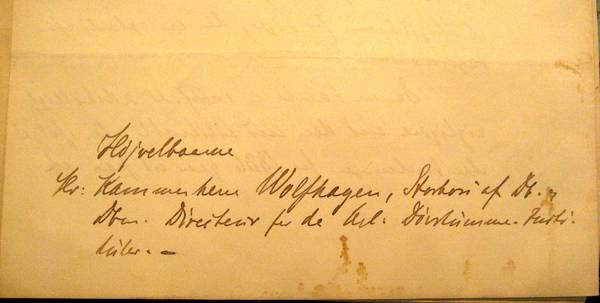 Højvelbaarne
Hr: Kammerherre Wolfhagen, Storkors af Db. &
Dbm. Directeur for de kgl: Døvstumme-Insti-
tuter. -